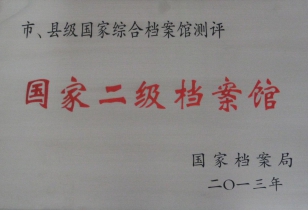 市、县级国家综合档案馆测评
国家二级档案馆
国家档案局
二〇一三年